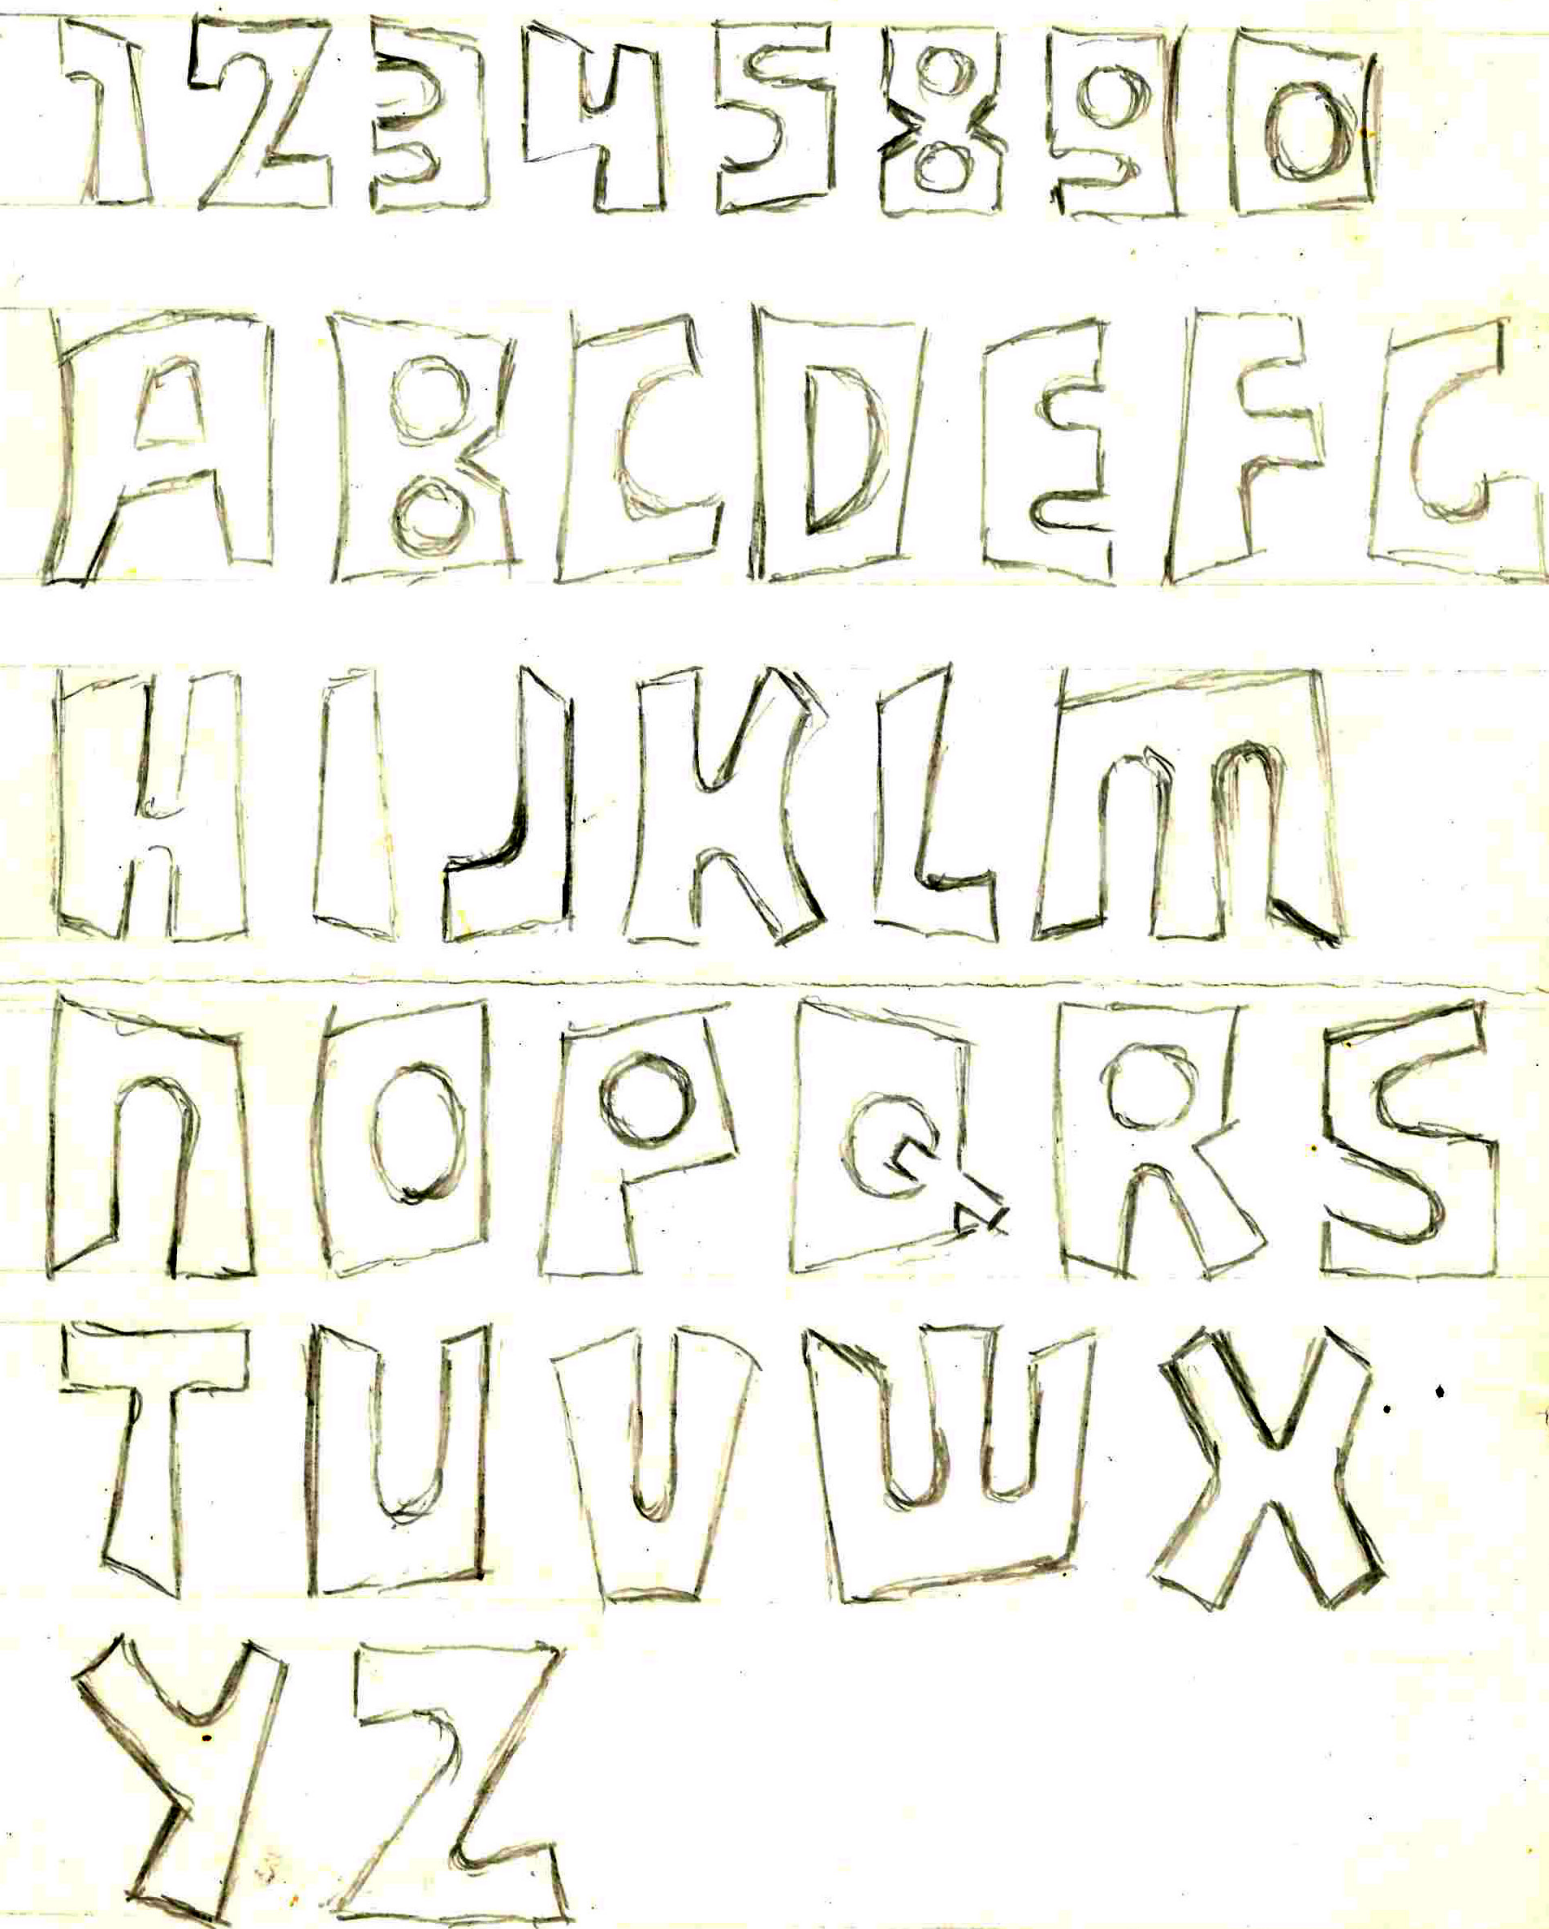 1 2 3 4 5 8 9 0
A B C D E F G
H I J K L M
N O P Q R S
T U V W X
Y Z